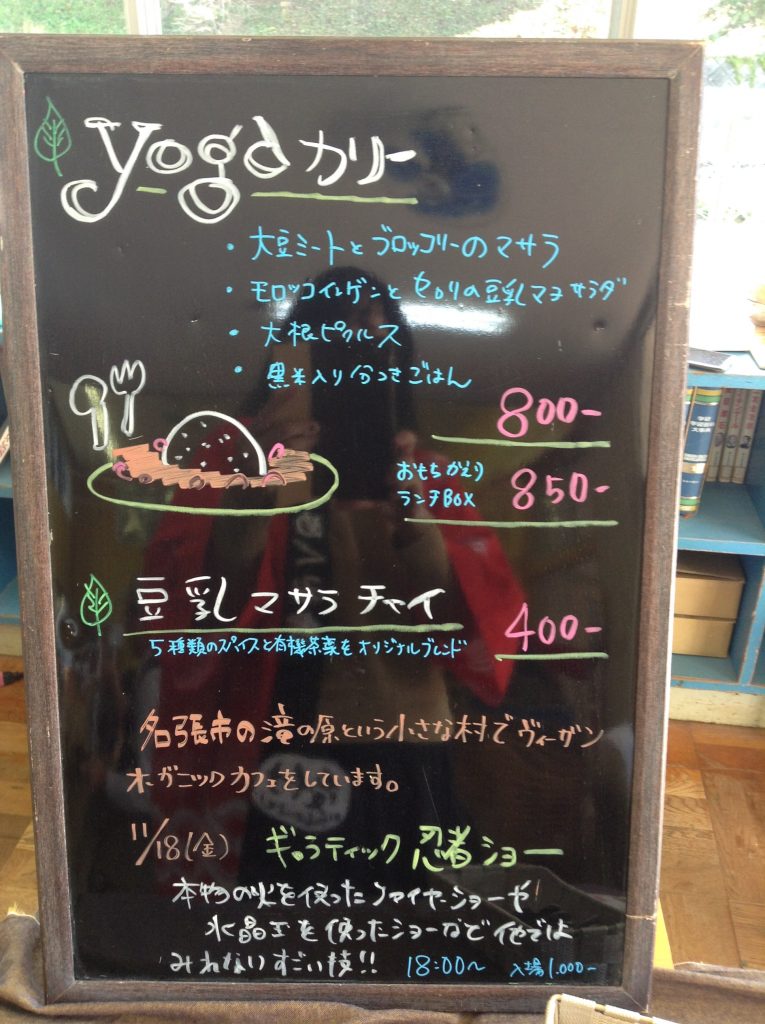 yogaカリー
・大豆ミートとブロッコリーのマサラ
・モロッコインゲンとセロリの豆乳マヨサラダ
・大根ピクルス
・黒米入り分つきごはん
800-
おもちかえり
ランチBOX 850-
豆乳マサラチャイ
400-
5種類のスパイスと有機茶葉をオリジナルブレンド
名張市の滝の原という小さな村でヴィーガン
オーガニックカフェをしています。
11/18(金) ギャラティック忍者ショー
本物の火を使ったファイヤーショーや
水晶玉を使ったショーなど他では
みれないすごい技!!
18:00〜 入場1.000-